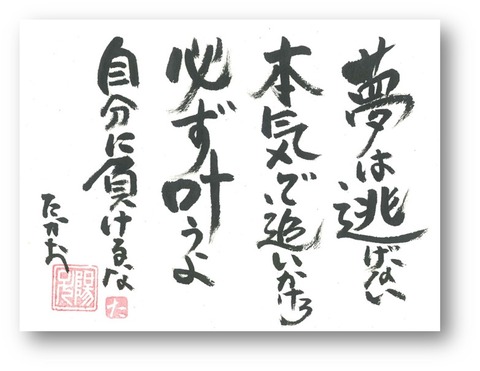 夢は逃げない
本気で追いかけろ
必ず叶うよ
自分に負けるな
たかお
た